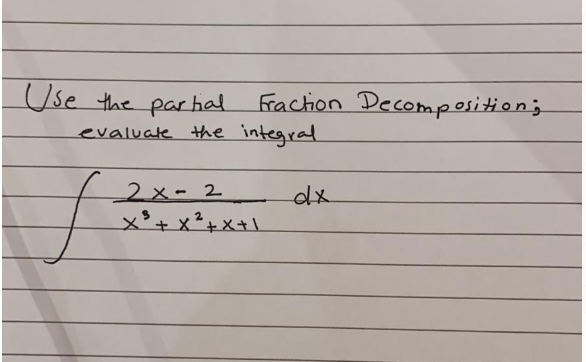 Use the partial Fraction Decomposition;
evaluate the integral
∫ (2x - 2)/(x³ + x² + x + 1) dx